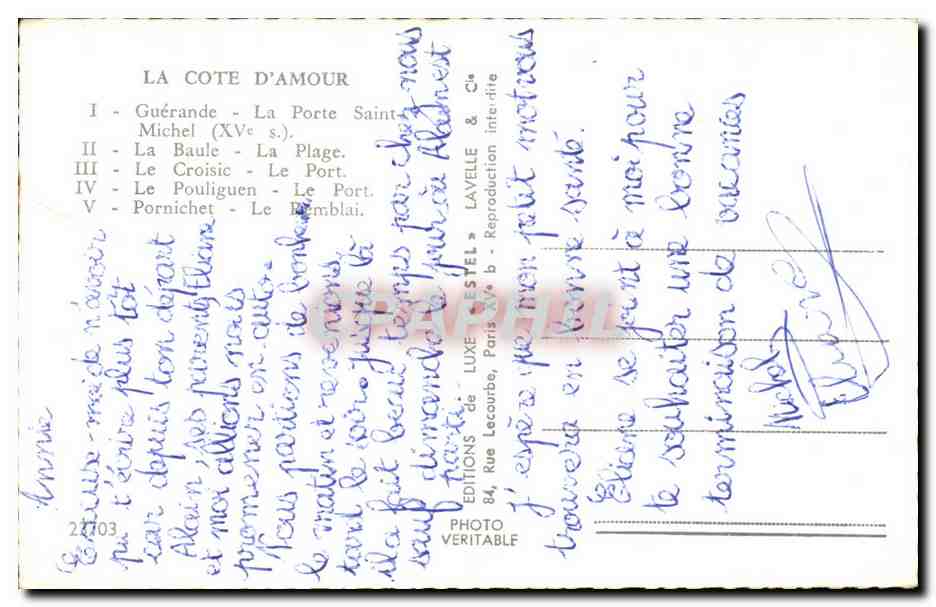 LA COTE D'AMOUR
I - Guérande - La Porte Saint-
Michel (XVe s.).
II - La Baule - La Plage.
III - Le Croisic - Le Port.
IV - Le Pouliguen - Le Port.
V - Pornichet - Le Remblai.
23703
PHOTO
VERITABLE
EDITIONS de LUXE « ESTEL » LAVELLE & Cie
84, Rue Lecourbe, Paris XVe b - Reproduction interdite
CPAPHIL
Annie
Excuse-moi de n'avoir
pu t'écrire plus tôt
car depuis ton départ
Alain, ses parents, Eliane
et moi allions nous
promener en auto.
Nous partions de bonheur
le matin et revenions
tard le soir. jusque là
il a fait beau temps par chez nous
sauf dimanche le est
parti.
J'espère que mon petit mot vous
trouvera en bonne santé.
Eliane se joint à moi pour
te souhaiter une bonne
terminaison de vacances
Michel